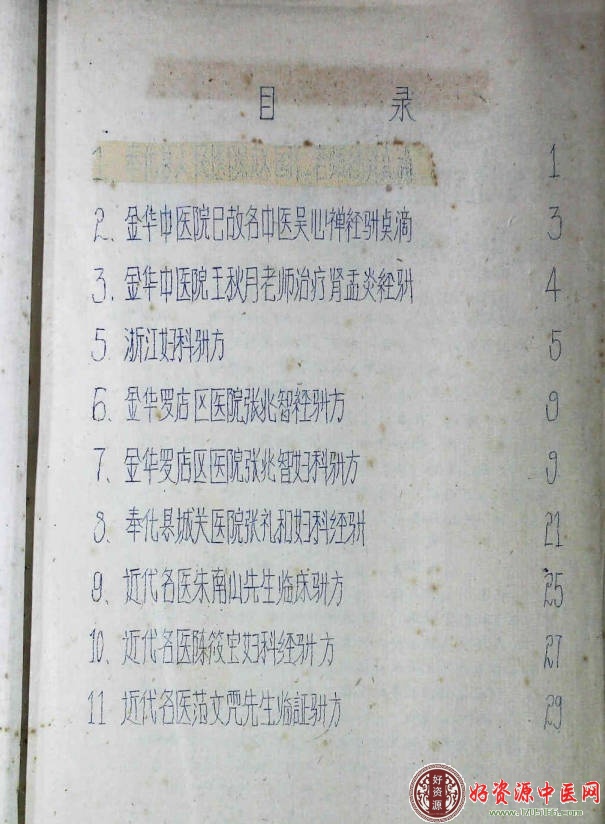 目 录
1、奉化 1
2、金华中医院已故名中医吴心禅经验点滴 3
3、金华中医院王秋月老师治疗肾盂炎经验 4
5、浙江妇科验方 5
6、金华罗店区医院张兆智经验方 9
7、金华罗店区医院张兆智妇科验方 9
8、奉化县城关医院张礼和妇科经验 21
9、近代名医朱南山先生临床验方 25
10、近代名医陈筱宝妇科经验方 27
11 近代名医范文虎先生临証验方 29
好资源
好资源中医网